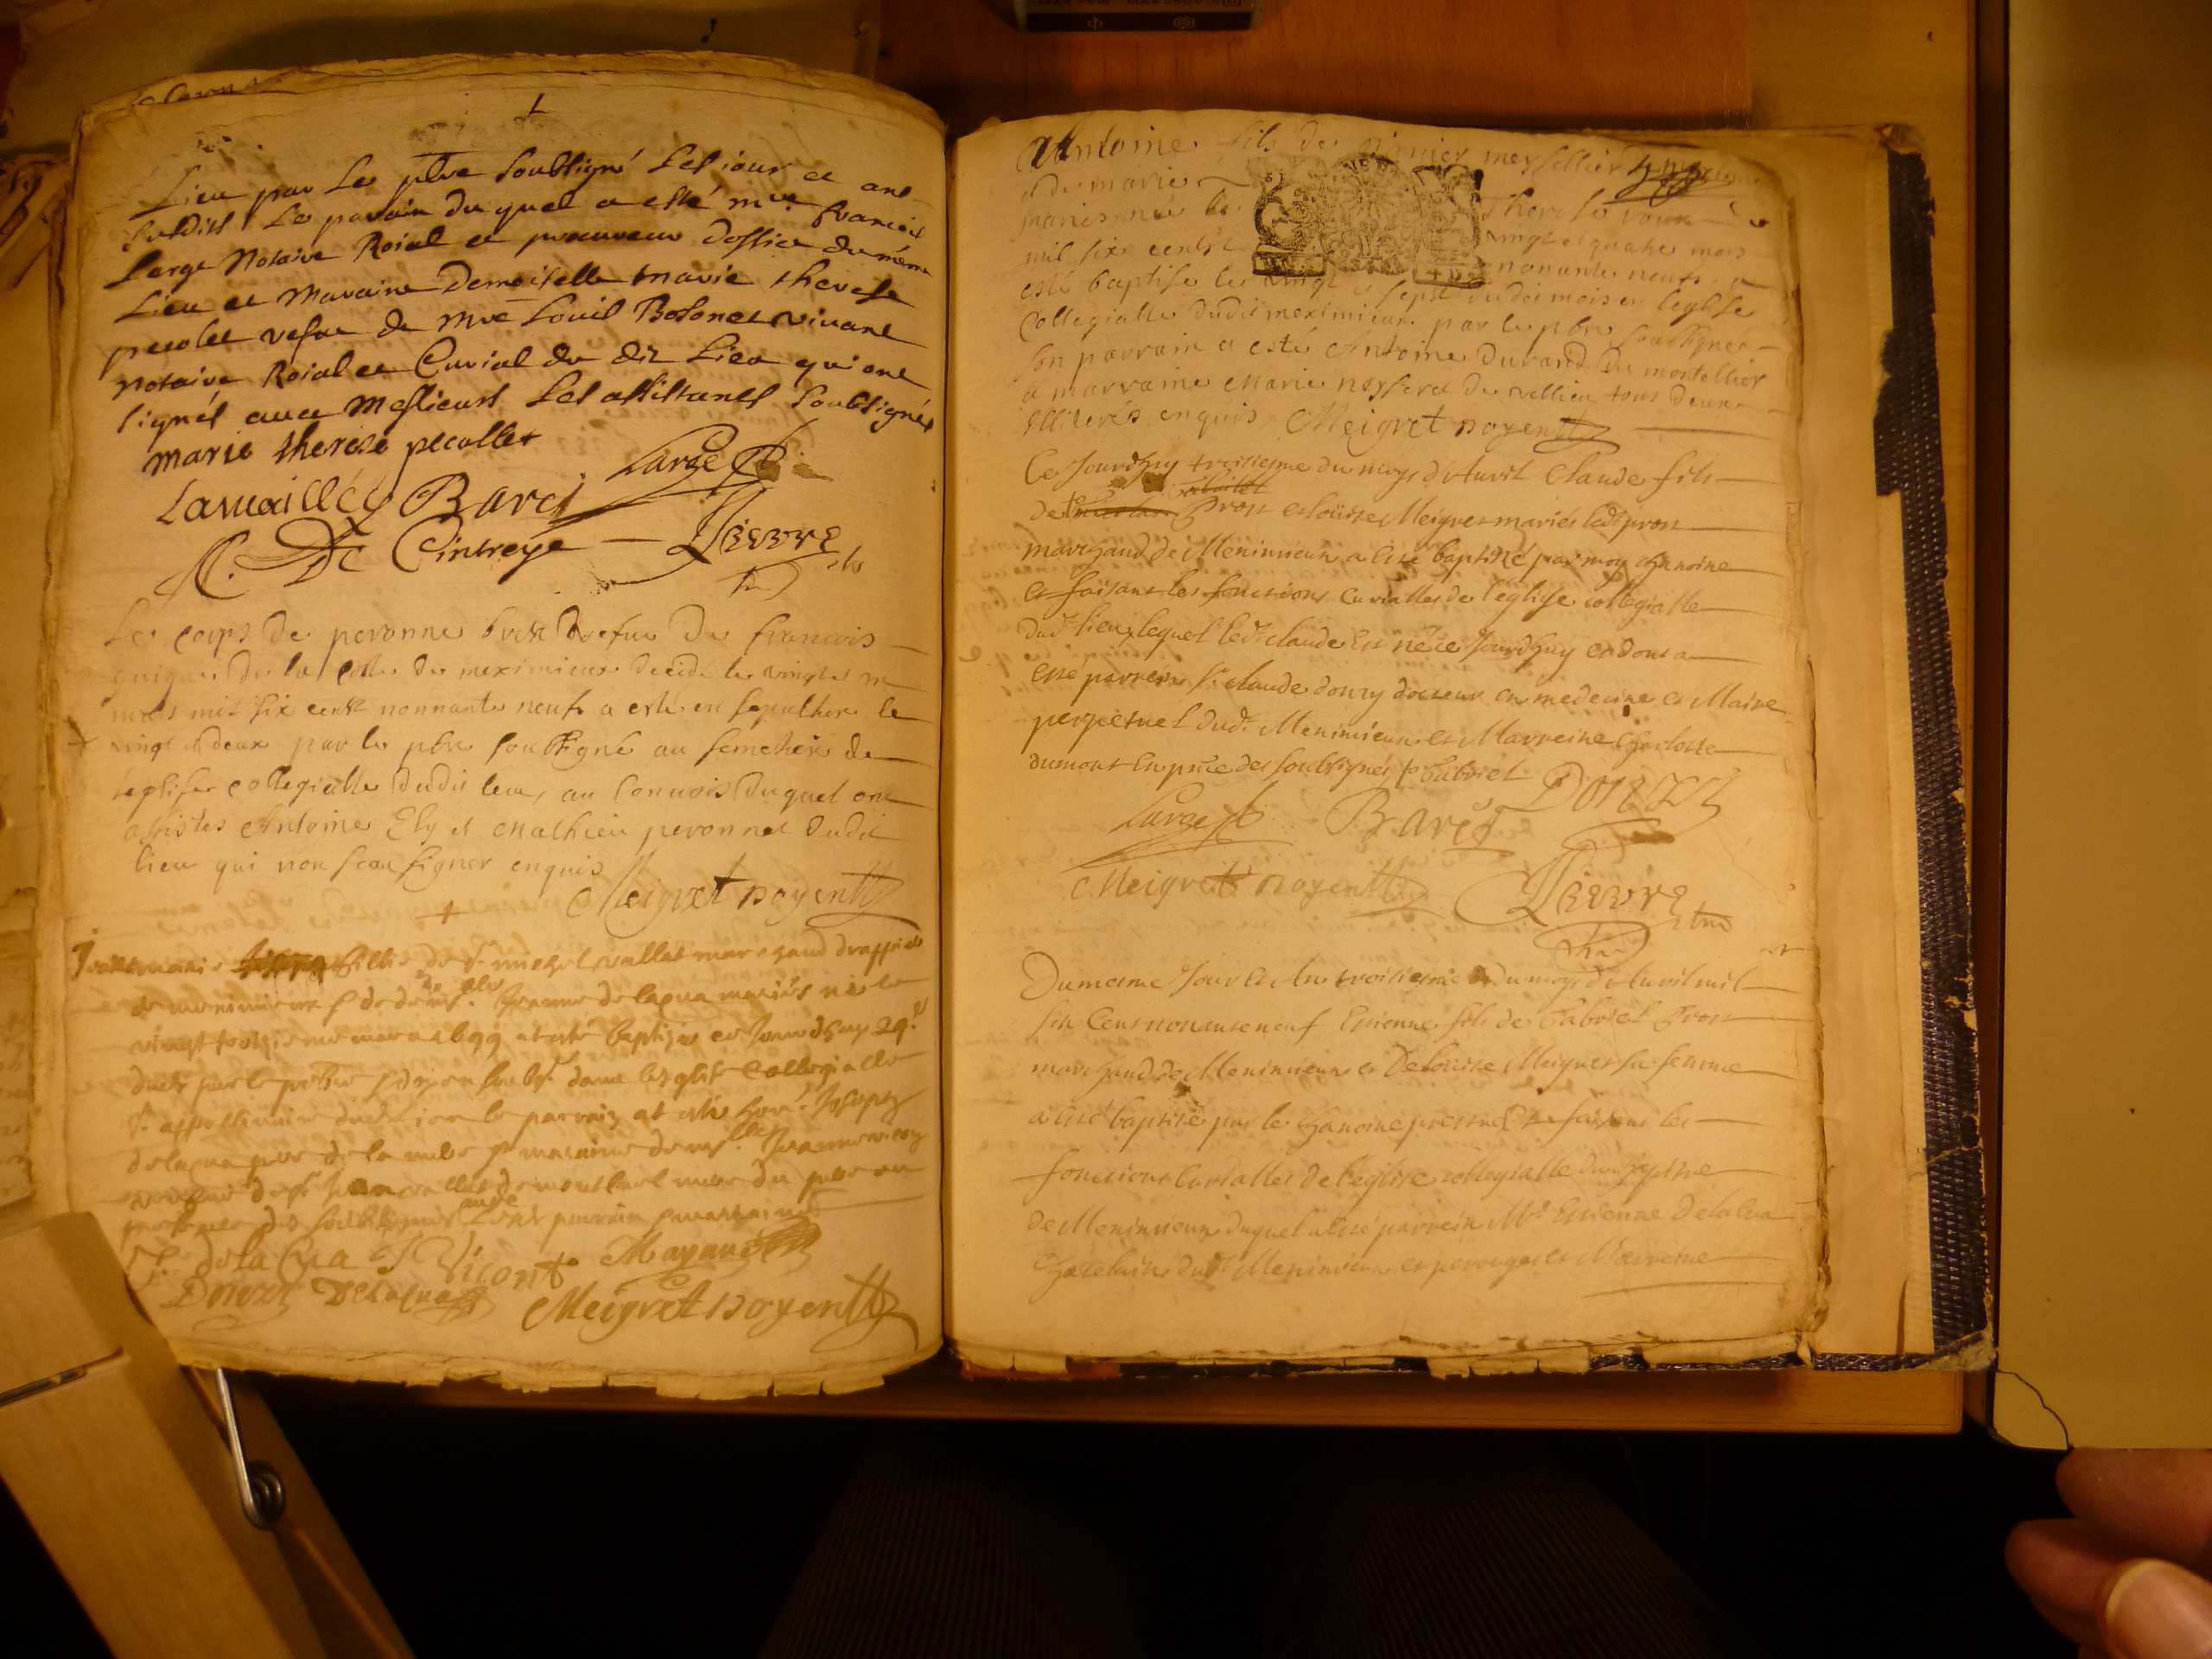 Lieu par Le pbre soubsigné Les iour et ans
susdist Le parain du quel a esté mre francois
Large Notaire Roial et procureur doffice du mème
Lieu et Maraine Demoiselle marie therese
pecolet vefue de Mre Louis Bolonet vivant
notaire Roial et Curial du dit Lieu qui ont
signés avec Messieurs Les assistants soubsignés
marie therese pecollet
Large
Lamaillée Barct
De Cintreye Lievre
Le corps de peronne vefue de francois
de la de meximieux decedé le vingt
mars mil six cents nonnante neuf a esté en sepulthere le
vingt et deux par le pbre soubsigné au semetiere de
leglise collegialle dudit lieu, au convois duquel ont
assistes Antoine Ely et Mathieu peronnet dudit
lieu qui non sceu signer enquis
Meigret doyen
marie fille de Sr michel vallet marchand drappier
de meximieux & de Jeanne de lacua mariés née le
vingt troisieme mars 1699 at esté baptizée ce Jourdhuy 29.
dudt par le doyen soubs. dans lesglise Collegialle
St appollinaire dudt lieu le parrain at esté Joseph
delacua pere de la mere & maraine Jeanne vicon
vallet de montluel mere du pere en
presence des soubsignés avec parrain & marraine
J. delaCua J Vicont Mayand
Donzy Delacua Meigret doyen
Antoine fils de mersellier
et de marie Therese
mariés né le vingt et quatre mars
mil six cents nonante neuf a
esté baptise le vingt sept dudit mois en leglise
Collegialle dudit meximieux par le pbre soubsigné
son parrain a esté Antoine Durand du montellier
et marraine Marie de villieu tous deux
illiterés enquis Meigret doyen
Ce Jourdhuy troisiesme du moys d'Avril Claude fils
Gabriel
de Pron et Louise Meigret mariés ledt pron
marchand de Meximieux a esté baptisé par moy chanoine
et faisant les fonctions curialles de l'eglise collegialle
dudt lieu, lequel ledt claude est né ce Jourdhuy et dont a
esté parrein Sr claude donzy docteur en medecine et Maire
perpetuel dudt Meximieux et Marreine Charlotte
dumont En pñce des soubsignés Gabriel
Large Barct Donzy
Meigret doyen Lievre
Du mesme Jour et An troisiesme du moys d'Avril mil
six Cent nonante neuf Estienne fils de Gabriel Pron
marchand de Meximieux et De Louise Meigret sa femme
a esté baptisé par le chanoine faisant les
fonctions Curialles de l'eglise collegialle du chapitre
de Meximieux duquel a esté parrein Mre Estienne DelaCua
Chatelain dudt Meximieux et perouges et Marreine